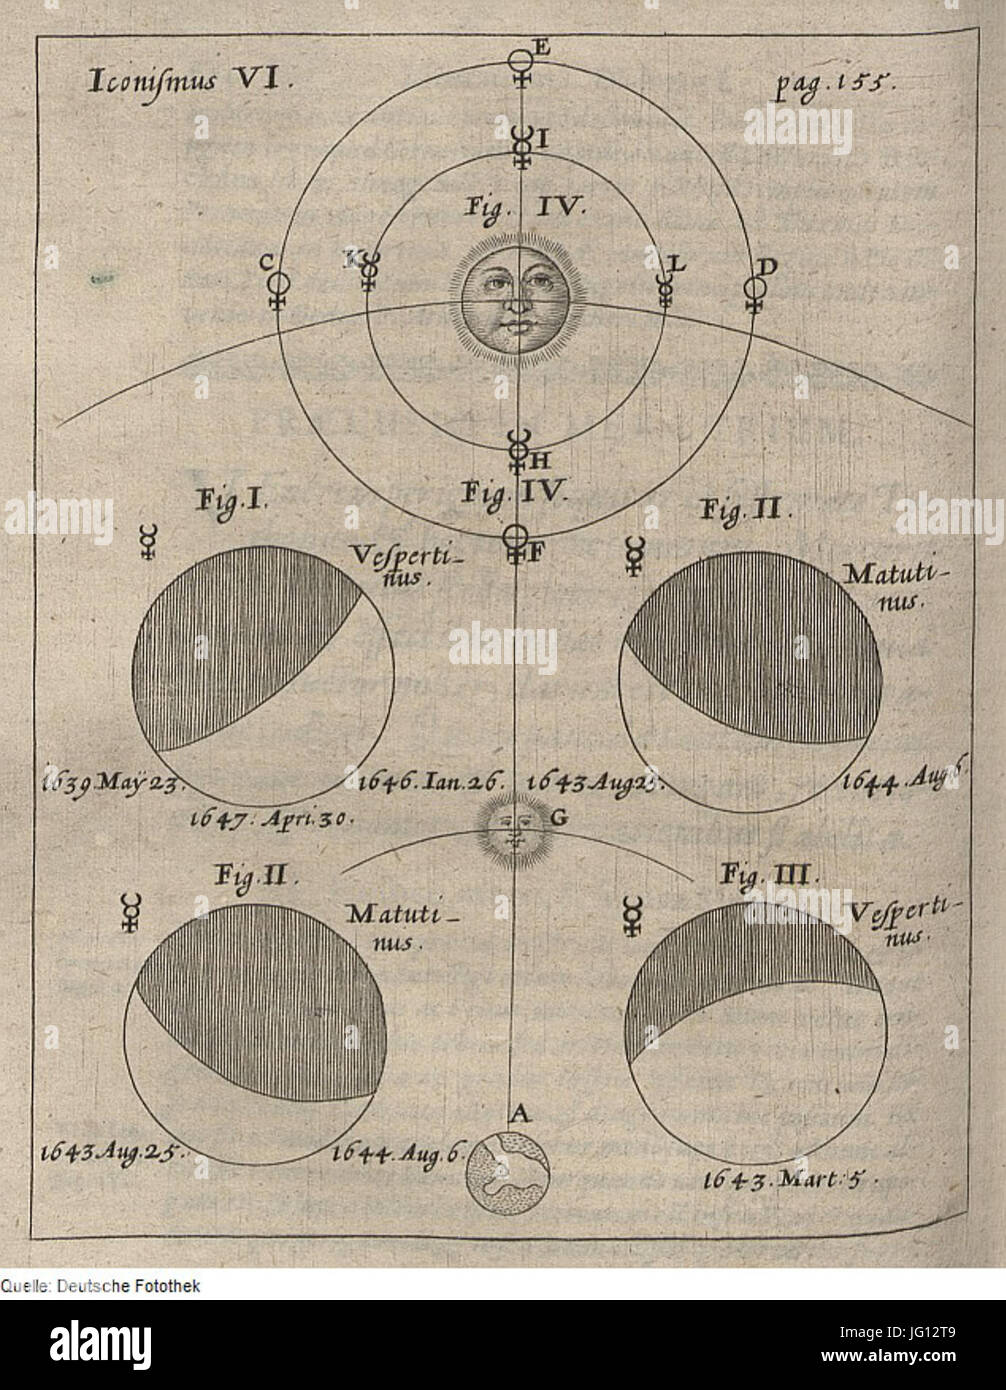 Iconiſmus VI.
pag. 155.
E
I
Fig. IV.
C
K
L
D
H
Fig. IV.
F
Fig. I.
Veſperti-
nus.
Fig. II.
Matuti-
nus.
1639 Maÿ 23.
1646. Ian. 26.
1647. Apri. 30.
1643 Aug 25.
1644. Aug 6.
G
Fig. II.
Matuti-
nus.
Fig. III.
Veſperti-
nus.
1643 Aug. 25.
1644. Aug. 6.
A
1643. Mart. 5.
Quelle: Deutsche Fotothek
alamy
Image ID: JG12T9
www.alamy.com